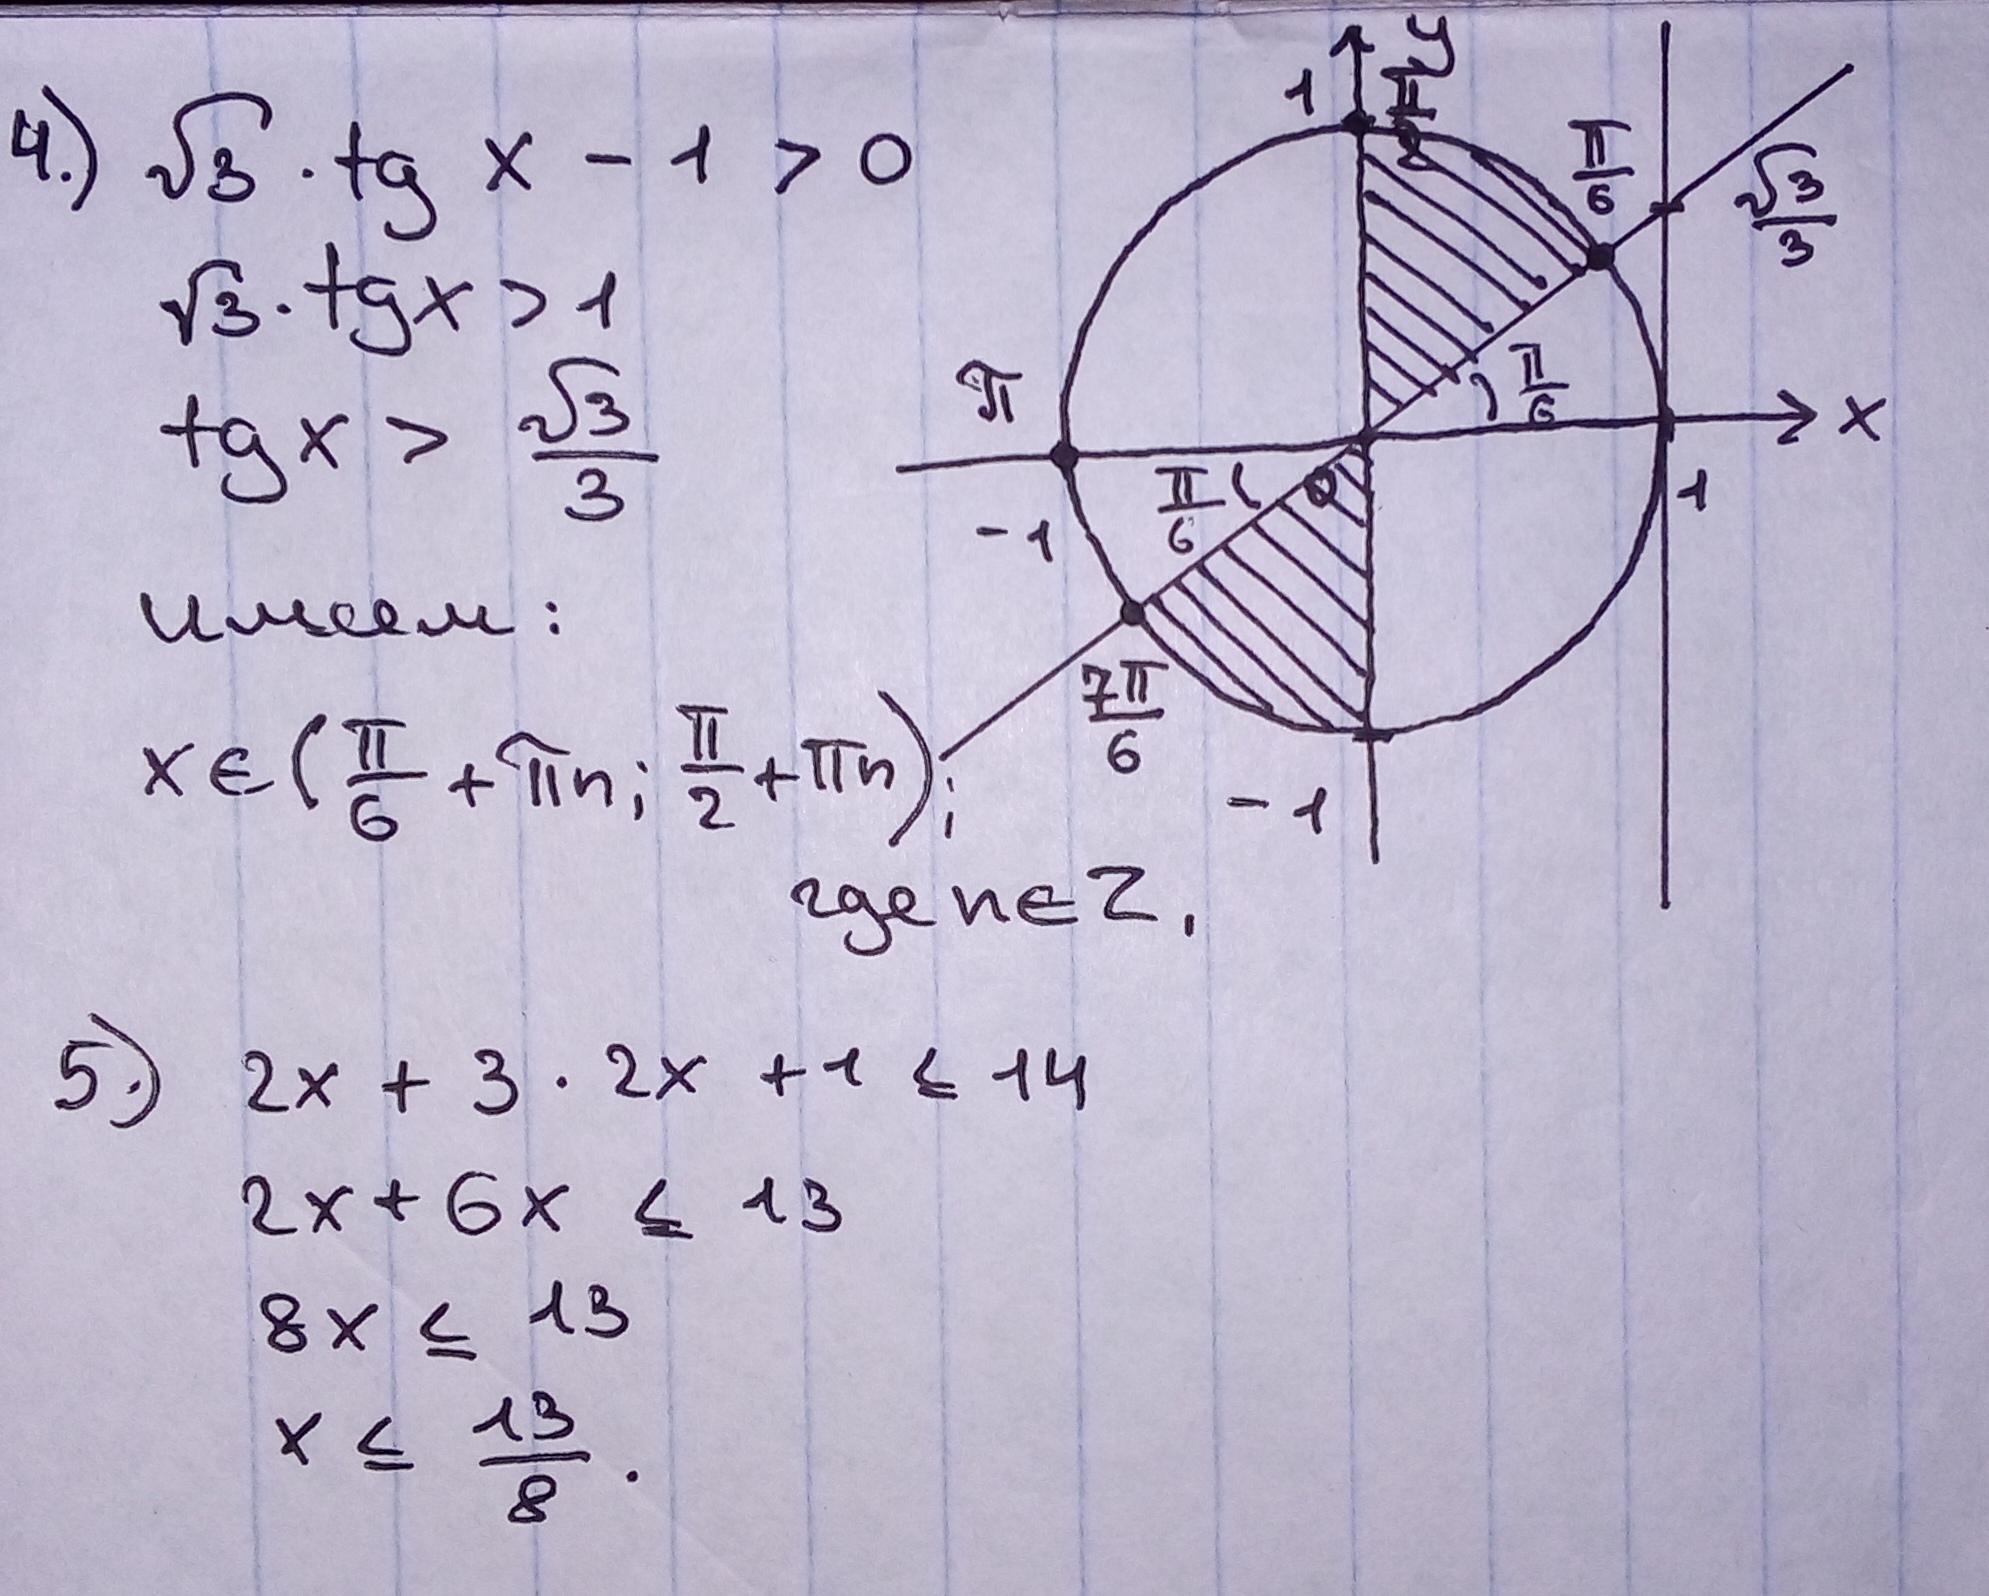 4.) √3 · tg x - 1 > 0
√3 · tg x > 1
tg x > √3/3
имеем:
x ∈ (π/6 + πn; π/2 + πn);
где n ∈ Z.
y
1
π/2
π/6
√3/3
π
π/6
x
-1
π/6
0
1
7π/6
-1
5.) 2x + 3 · 2x + 1 ≤ 14
2x + 6x ≤ 13
8x ≤ 13
x ≤ 13/8.